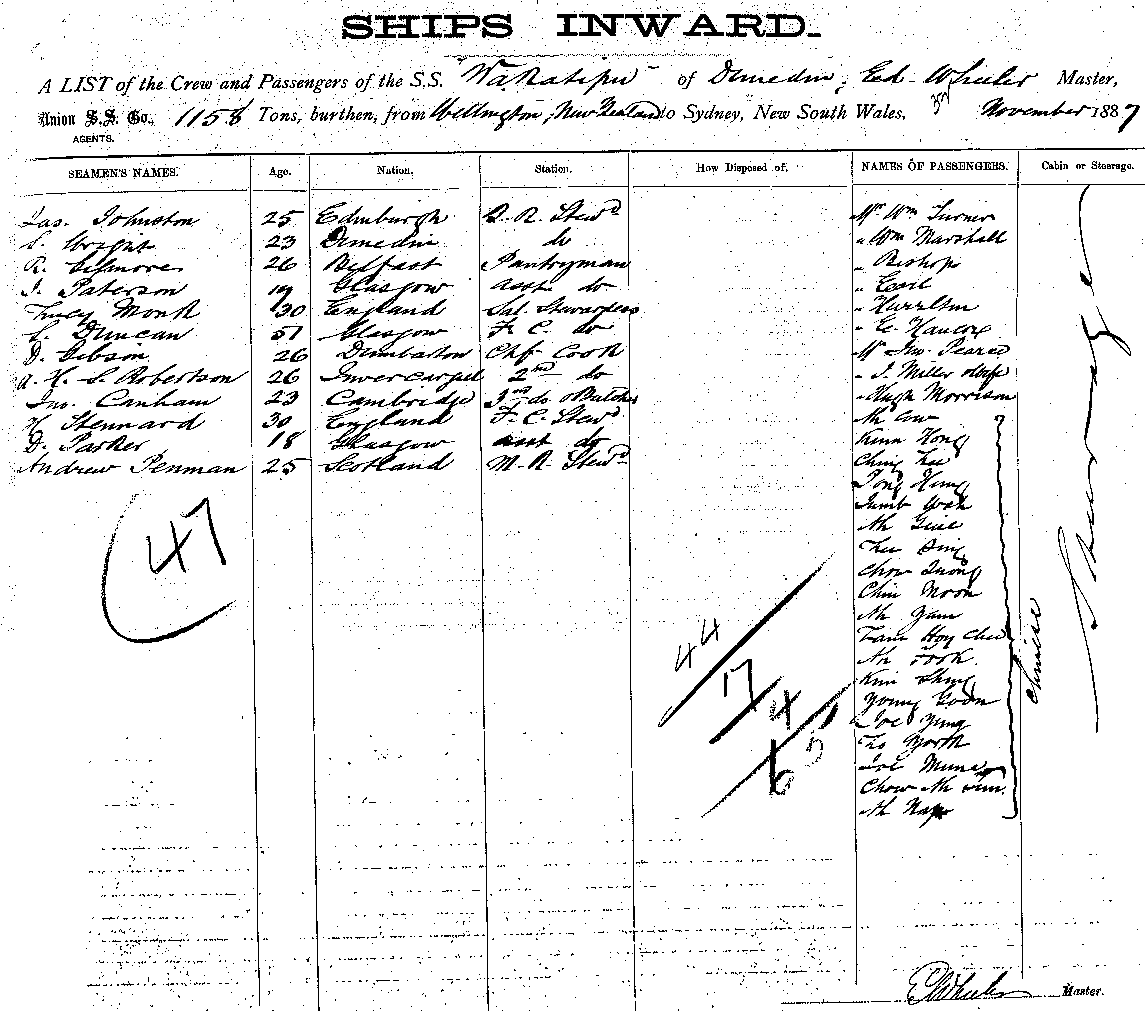 SHIPS INWARD.
A LIST of the Crew and Passengers of the S.S. "Wakatipu" of Dunedin, Ed. Wheeler Master,
Union S.S. Co., 1158 Tons, burthen, from Wellington, New Zealand to Sydney, New South Wales, November 1887
AGENTS.
SEAMEN'S NAMES. Age. Nation. Station. How Disposed of. NAMES OF PASSENGERS. Cabin or Steerage.
Jas. Johnston 25 Edinburgh S. R. Stewd Mr Wm Turner
Wright 23 Dunedin do " Wm Marshall
R. Gilmore 26 Belfast Pantryman " Bishop
J. Paterson 19 Glasgow asst do " Cecil
Lucy Monk 30 England Sal. Stewardess
Duncan 51 Glasgow F. C. do
D. Gibson 26 Dumbarton Chf Cook Mr Jno. Pearce
A. H. S. Robertson 26 Invercargill 2nd do " J. Miller
Jno. Canham 23 Cambridge do & Butcher " Hugh Morrison
H. Stennard 30 England F. C. Stewd Ah Cow
D. Parker 18 Glasgow asst do Kum Hong
Andrew Penman 25 Scotland M. R. Stewd Ching Lee
Tong Hung
Jumb Wah
Ah
Lee Sing
Chow
Chin Moon
Ah Yam
Tam Hoy Chee
Ah Fook.
Kim Shing
Young Goon
Joe Yung
York
Joe
Chow Ah
Ah Nap
Chinese
Steerage
47
44
17
4
65
E Wheeler Master.